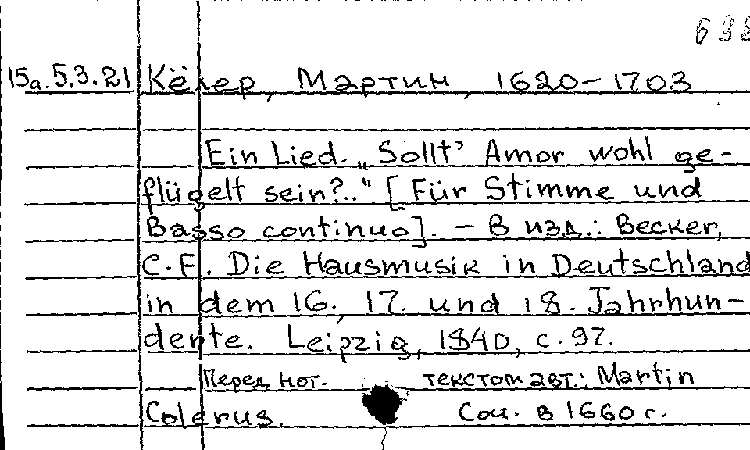 15а.5.3.21 Кёлер, Мартин, 1620–1703
Ein Lied. „Sollt' Amor wohl ge-
flügelt sein?.." [Für Stimme und
Basso continuo]. – В изд.: Becker,
C.F. Die Hausmusik in Deutschland
in dem 16., 17. und 18. Jahrhun-
derte. Leipzig, 1840, с. 97.
Перед нот. текстом авт.: Martin
Colerus. Соч. в 1660 г.